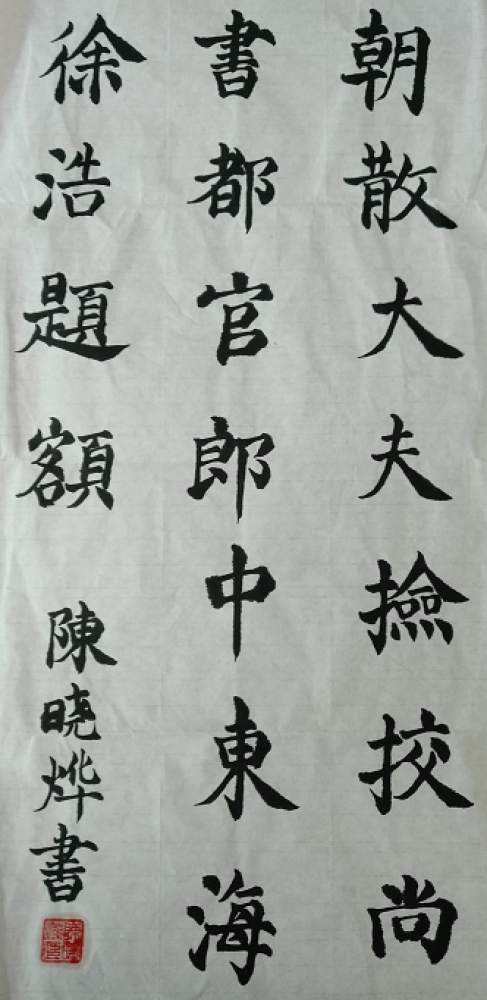 朝散大夫撿挍尚
書都官郎中東海
徐浩題額
陳晓烨書